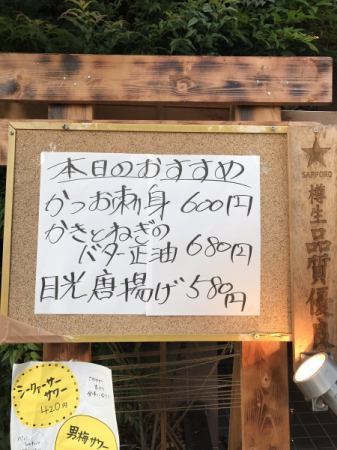 本日のおすすめ
かつお刺身 600円
かきとねぎの
バター正油 680円
目光唐揚げ 580円
SAPPORO
樽生品質優良
シークヮーサー
サワー
420円
男梅サワー